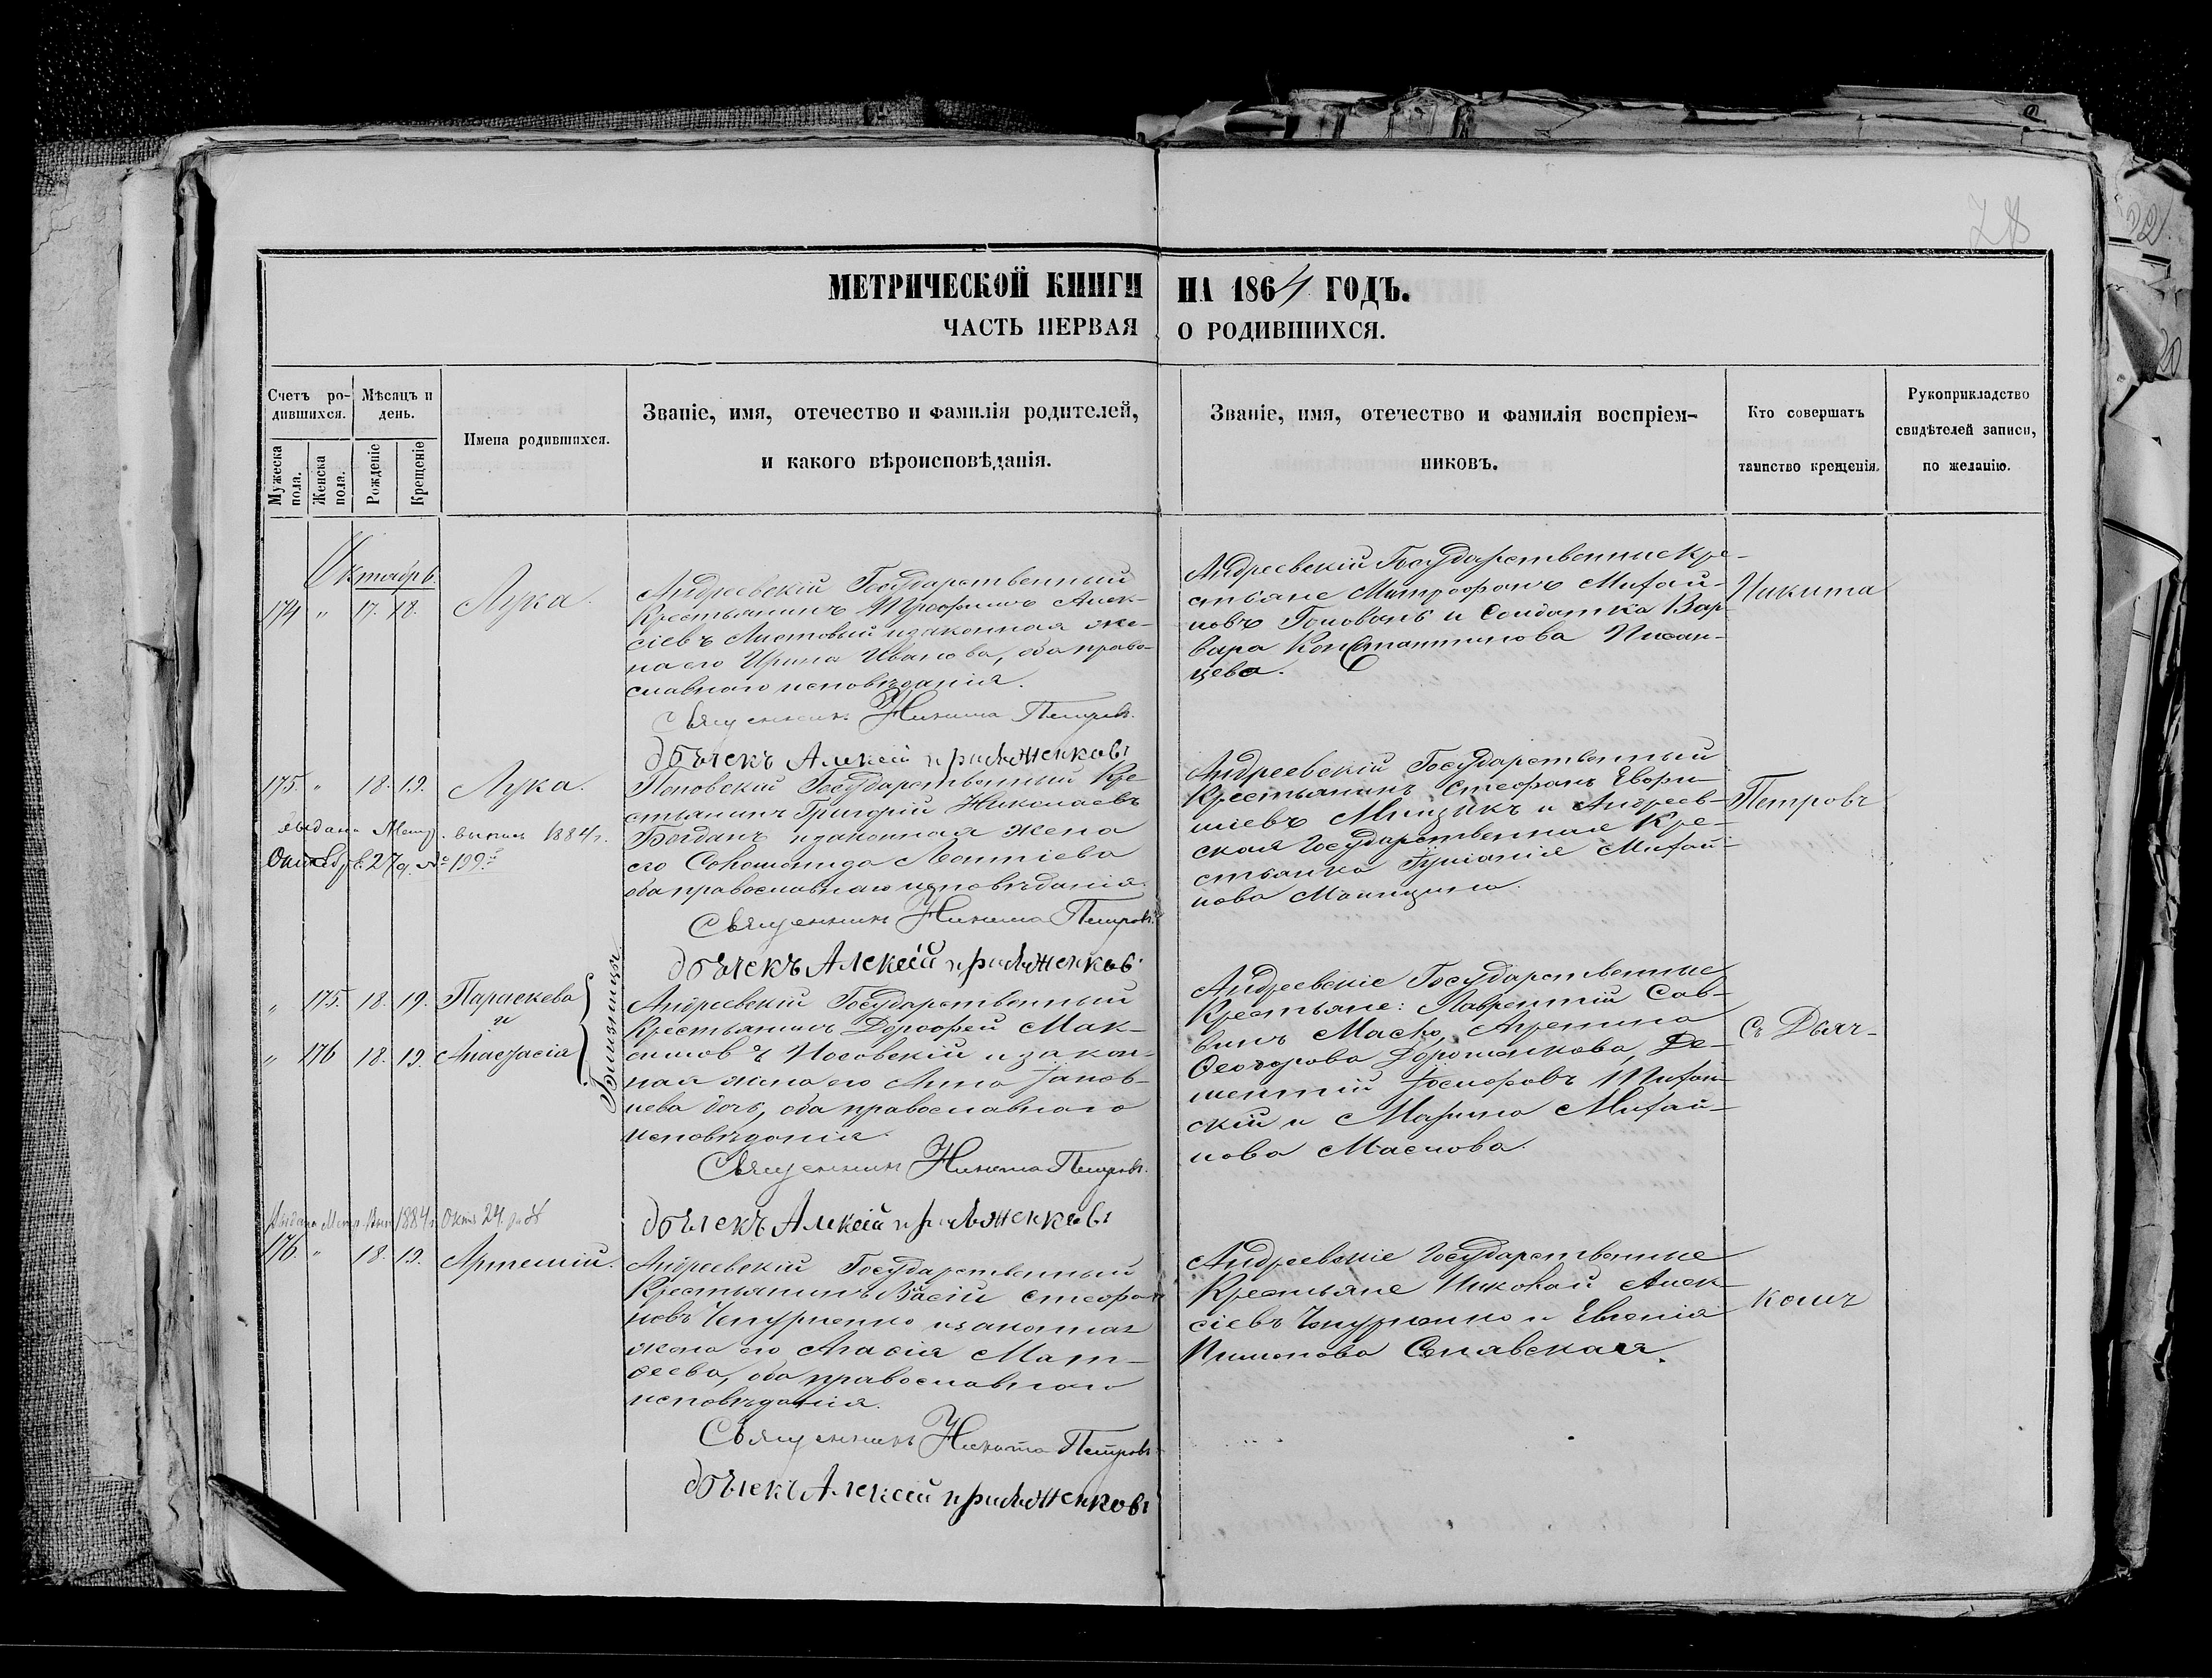 МЕТРИЧЕСКОЙ КНИГИ НА 1864 ГОДЪ.
ЧАСТЬ ПЕРВАЯ О РОДИВШИХСЯ.
Счетъ ро-
дившихся.
Мужеска пола.
Женска пола.
Мѣсяцъ и
день.
Рожденіе
Крещеніе
Имена родившихся.
Званіе, имя, отечество и фамилія родителей,
и какого вѣроисповѣданія.
Званіе, имя, отечество и фамилія воспріем-
никовъ.
Кто совершатъ
таинство крещенія.
Рукоприкладство
свидѣтелей записи,
по желанію.
Октябрь.
174 " 17. 18. Лука.
Андреевскій Государственный
Крестьянинъ Трофимъ Алек-
сіевъ Листовый и законная же-
на его Ирина Иванова, оба право-
славнаго исповѣданія.
Священникъ Никита Петровъ.
дьячекъ Алексій
Андреевскій Государственные Кре-
стьяне Митрофанъ Михай-
ловъ Головань и Солдатка Вар-
вара Константинова Писан-
цева.
Никита
175. " 18. 19. Лука.
выдана Метр. выпись 1884 г.
Октября 27 д. № 199
Поповскій Государственный Кре-
стьянинъ Григорій Николаевъ
Богданъ и законная жена
его Соломонида Леонтіева
оба православнаго исповѣданія.
Священникъ Никита Петровъ.
дьячекъ Алексій
Андреевскій Государственный
Крестьянинъ Стефанъ Евфи-
міевъ и Андреев-
ская Государственная Кре-
стьянка Іуліанія Михай-
лова
Петровъ
" 175. 18. 19. Параскева
и
" 176 18. 19. Анастасія
Близницы.
Андреевскій Государственный
Крестьянинъ Дорофей Мак-
симовъ Носовскій и закон-
ная жена его Анна Іаков-
лева дочь, оба православнаго
исповѣданія.
Священникъ Никита Петровъ.
дьячекъ Алексій
Андреевскіе Государственные
Крестьяне: Лаврентій Сав-
винъ Масло, Агрепина
Феодорова Дорошенкова, Де-
ментій Іосифовъ
и Марина Михай-
лова Маслова.
Съ Дьяч-
Выдана Метр. Вып. 1884 г. Окт. 24
176. " 18. 19. Артемій.
Андреевскій Государственный
Крестьянинъ Васій Стефа-
новъ Чепурненко и законная
жена его Агасія Мат-
феева, оба православнаго
исповѣданія.
Священникъ Никита Петровъ
дьячекъ Алексій
Андреевскіе Государственные
Крестьяне Николай Алек-
сіевъ Чепурненко и Евгенія
Пименова Синявская.
комъ